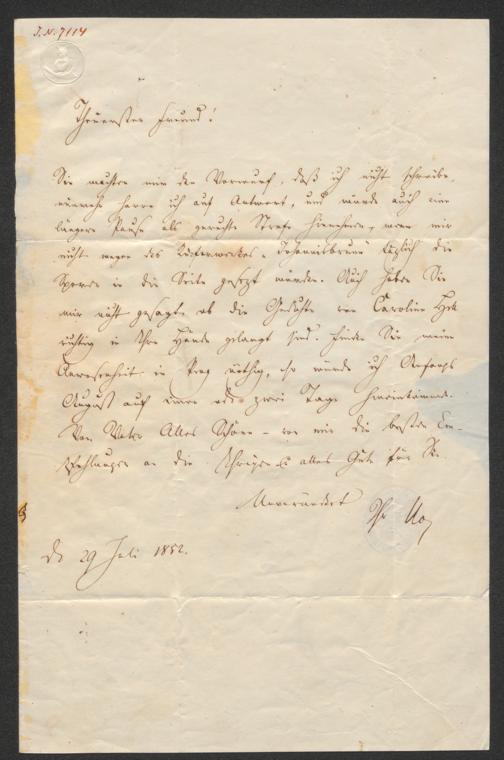 J. N. 7114
Theuerster Freund!
Sie machten mir den Vorwurf, daß ich nicht schreibe,
nunmehr harre ich auf Antwort, und würde auch eine
längere Pause als gerechte Strafe hinnehmen, wenn mir
nicht wegen des Kupferwerkes u Johannisbrunn täglich die
Sporen in die Seite gesetzt würden. Auch haben Sie
mir nicht gesagt, ob die Gedichte von Caroline
richtig in Ihre Hände gelangt sind. Finden Sie meine
Anwesenheit in Prag nöthig, so würde ich Anfangs
August auf einen oder zwei Tage hineinkommen.
Von Vater Alles Schöne – von mir die besten Em-
pfehlungen an die Ihrigen u alles Gute für Sie.
Unverändert Ihr
D 29 Juli 1852.